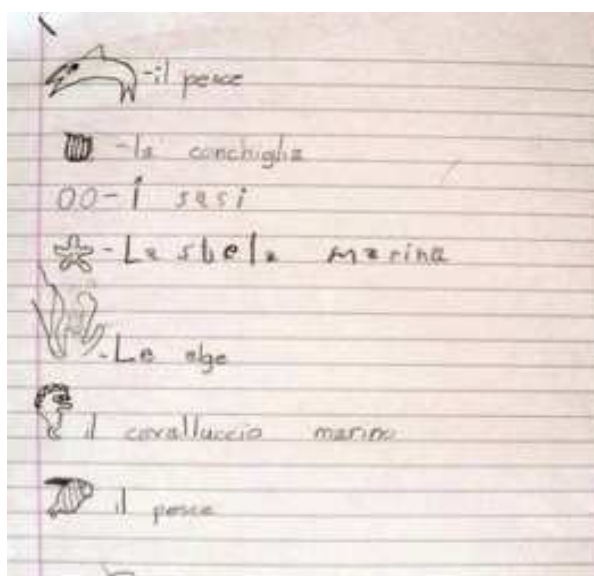 -il pesce
-la conchiglia
-i sasi
-La sbela marina
-Le alge
il cavalluccio marino
il pesce